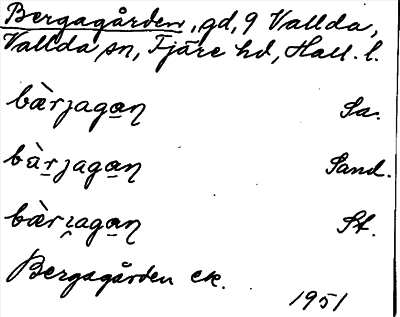 Bergagården, gd, 9 Vallda,
Vallda sn, Fjäre hd, Hall. l.
bàrjaga̲n Sa.
bàr̲jaga̲n Sand.
bàrjaga̲n St.
Bergagården ek.
1951